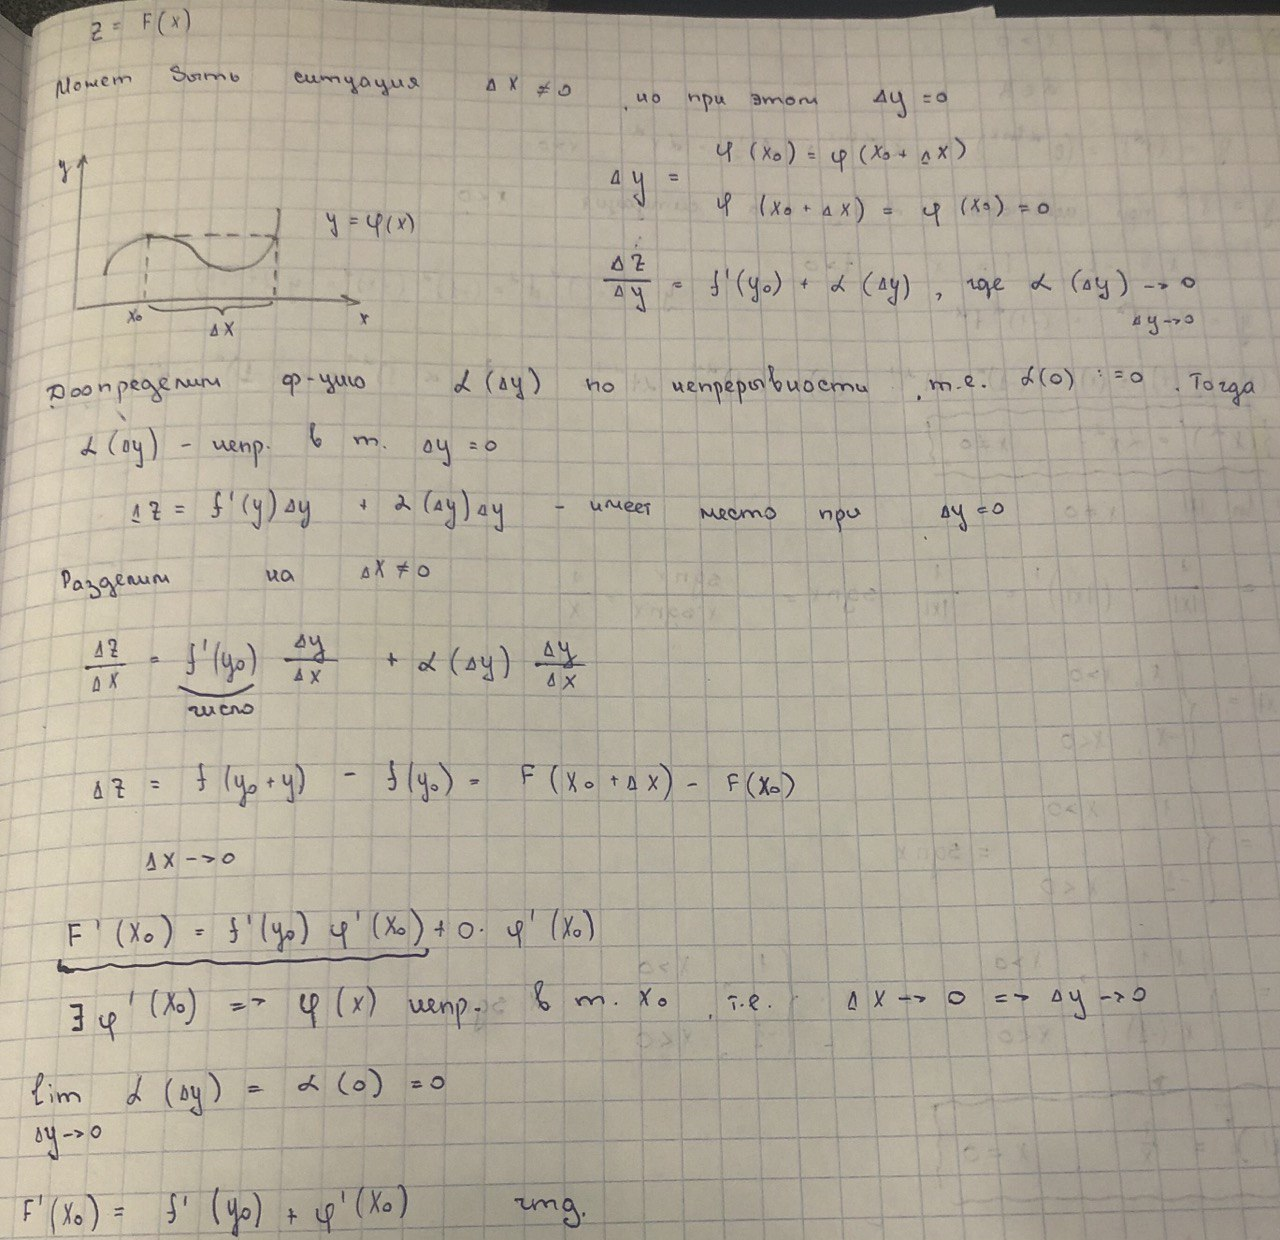 z = F(x)
Может быть ситуация Δx ≠ 0, но при этом Δy = 0
φ(x₀) = φ(x₀ + Δx)
Δy =
φ(x₀ + Δx) = φ(x₀) = 0
y
y = φ(x)
Δz/Δy = f'(y₀) + α(Δy), где α(Δy) → 0
Δy → 0
x₀ Δx x
Доопределим ф-цию α(Δy) по непрерывности, т.е. α(0) := 0. Тогда
α(Δy) - непр. в т. Δy = 0
Δz = f'(y)Δy + α(Δy)Δy - имеет место при Δy = 0
Разделим на Δx ≠ 0
Δz/Δx = f'(y₀) Δy/Δx + α(Δy) Δy/Δx
число
Δz = f(y₀ + y) - f(y₀) = F(x₀ + Δx) - F(x₀)
Δx → 0
F'(x₀) = f'(y₀) φ'(x₀) + 0 · φ'(x₀)
∃ φ'(x₀) => φ(x) непр. в т. x₀, т.е. Δx → 0 => Δy → 0
lim α(Δy) = α(0) = 0
Δy → 0
F'(x₀) = f'(y₀) + φ'(x₀) чтд.